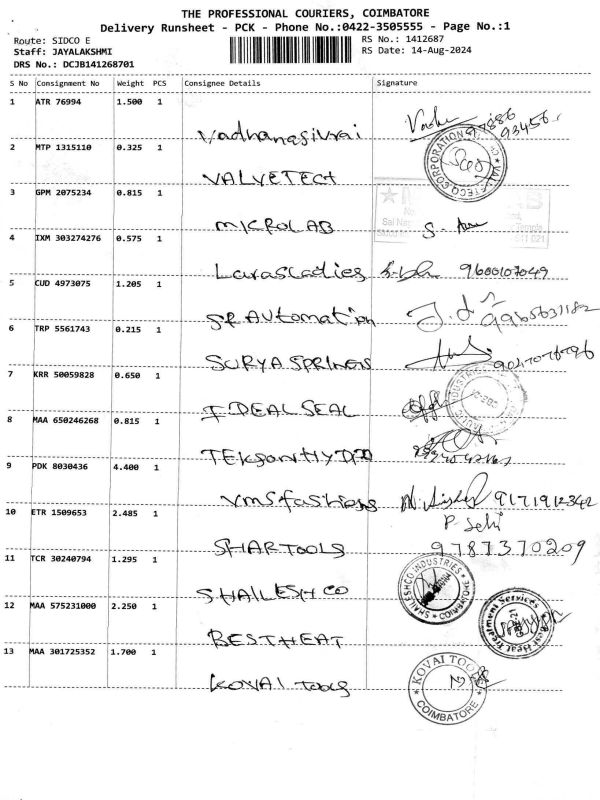 THE PROFESSIONAL COURIERS, COIMBATORE
Delivery Runsheet - PCK - Phone No.:0422-3505555 - Page No.:1
Route: SIDCO E
RS No.: 1412687
Staff: JAYALAKSHMI
RS Date: 14-Aug-2024
DRS No.: DCJB141268701
S No Consignment No Weight PCS Consignee Details Signature
1 ATR 76994 1.500 1
93456
2 MTP 1315110 0.325 1
VALVETECH
3 GPM 2075234 0.815 1
MICROLAB
4 IXM 303274276 0.575 1
9600107049
5 CUD 4973075 1.205 1
SR AUtomation
6 TRP 5561743 0.215 1
SURYA SPRINGS
7 KRR 50059828 0.650 1
IDEAL SEAL
8 MAA 650246268 0.815 1
9 PDK 8030436 4.400 1
vms fashions 9171912342
10 ETR 1509653 2.485 1
SHAR TOOLS 9787370209
11 TCR 30240794 1.295 1
SHAILESH CO
SHAILESHCO INDUSTRIES COIMBATORE
12 MAA 575231000 2.250 1
BEST HEAT
Best Heat Treatment Services
13 MAA 301725352 1.700 1
KOVAI TOOLS
KOVAI TOOLS COIMBATORE